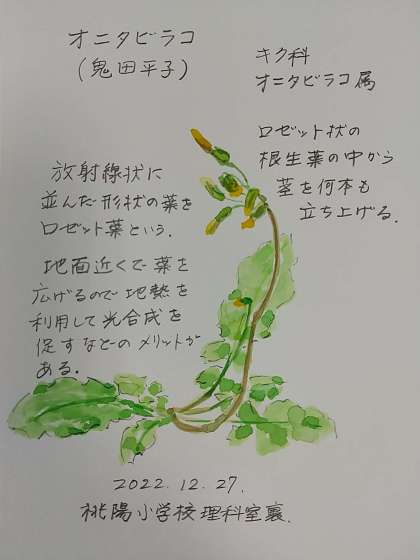 オニタビラコ
(鬼田平子)
キク科
オニタビラコ属
ロゼット状の
根生葉の中から
茎を何本も
立ち上げる.
放射線状に
並んだ形状の葉を
ロゼット葉という.
地面近くで葉を
広げるので地熱を
利用して光合成を
促すなどのメリットが
ある.
2022.12.27.
桃陽小学校理科室裏.